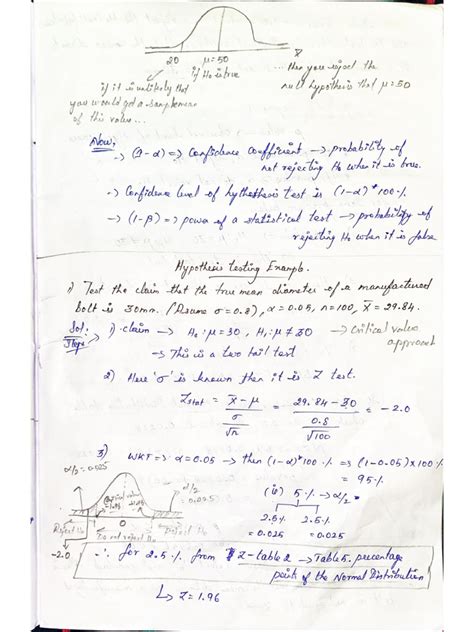 20 μ=50 X̄
if H₀ is true
if it is unlikely that
you would get a sample mean
of this value...
... then you reject the
null hypothesis that μ=50
Now,
→ (1-α) => Confidence Coefficient → probability of
not rejecting H₀ when it is true.
→ Confidence level of hythesis test is (1-α)*100%
→ (1-β) => power of a statistical test → probability of
rejecting H₀ when it is false
Hypothesis Testing Example.
1) Test the claim that the true mean diameter of a manufactured
bolt is 30mm. (Assume σ=0.8), α=0.05, n=100, X̄=29.84.
Sol:
Steps
1) claim → H₀: μ=30, H₁: μ≠30 → Critical value
approach
→ This is a two tail test
2) Here 'σ' is known then it is Z test.
Zstat = X̄-μ / σ/√n = 29.84-30 / 0.8/√100 = -2.0
3) WKT => α=0.05 → then (1-α)*100% => (1-0.05)×100%
= 95%
(ie) 5% → α/2 =
2.5% 2.5%
= 0.025 = 0.025
α/2=0.025
α/2
=0.025)
Critical value
-1.96
0
Reject H₀
Do not reject H₀
Reject H₀
-2.0
∴ for 2.5% from Z-table 2 → Table 5. percentage
point of the Normal Distribution
↳ Z = 1.96